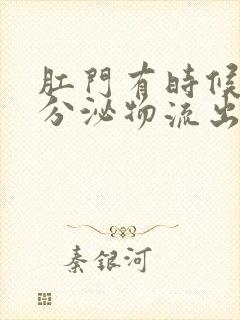 肛門有時候
分泌物流出
秦銀河